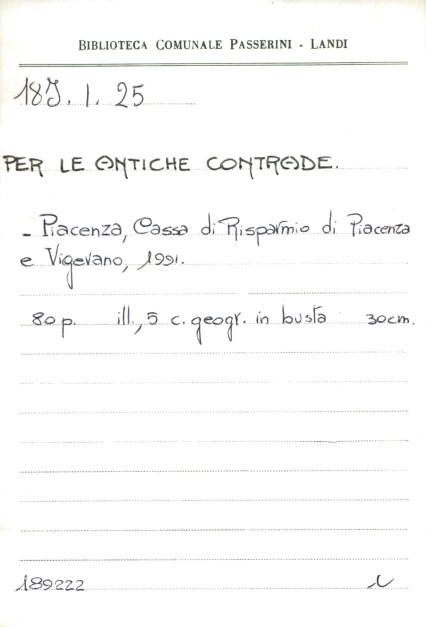 BIBLIOTECA COMUNALE PASSERINI - LANDI
18J. 1. 25
PER LE ANTICHE CONTRADE.
- Piacenza, Cassa di Risparmio di Piacenza
e Vigevano, 1991.
80 p. ill., 5 c. geogr. in busta 30cm.
189222